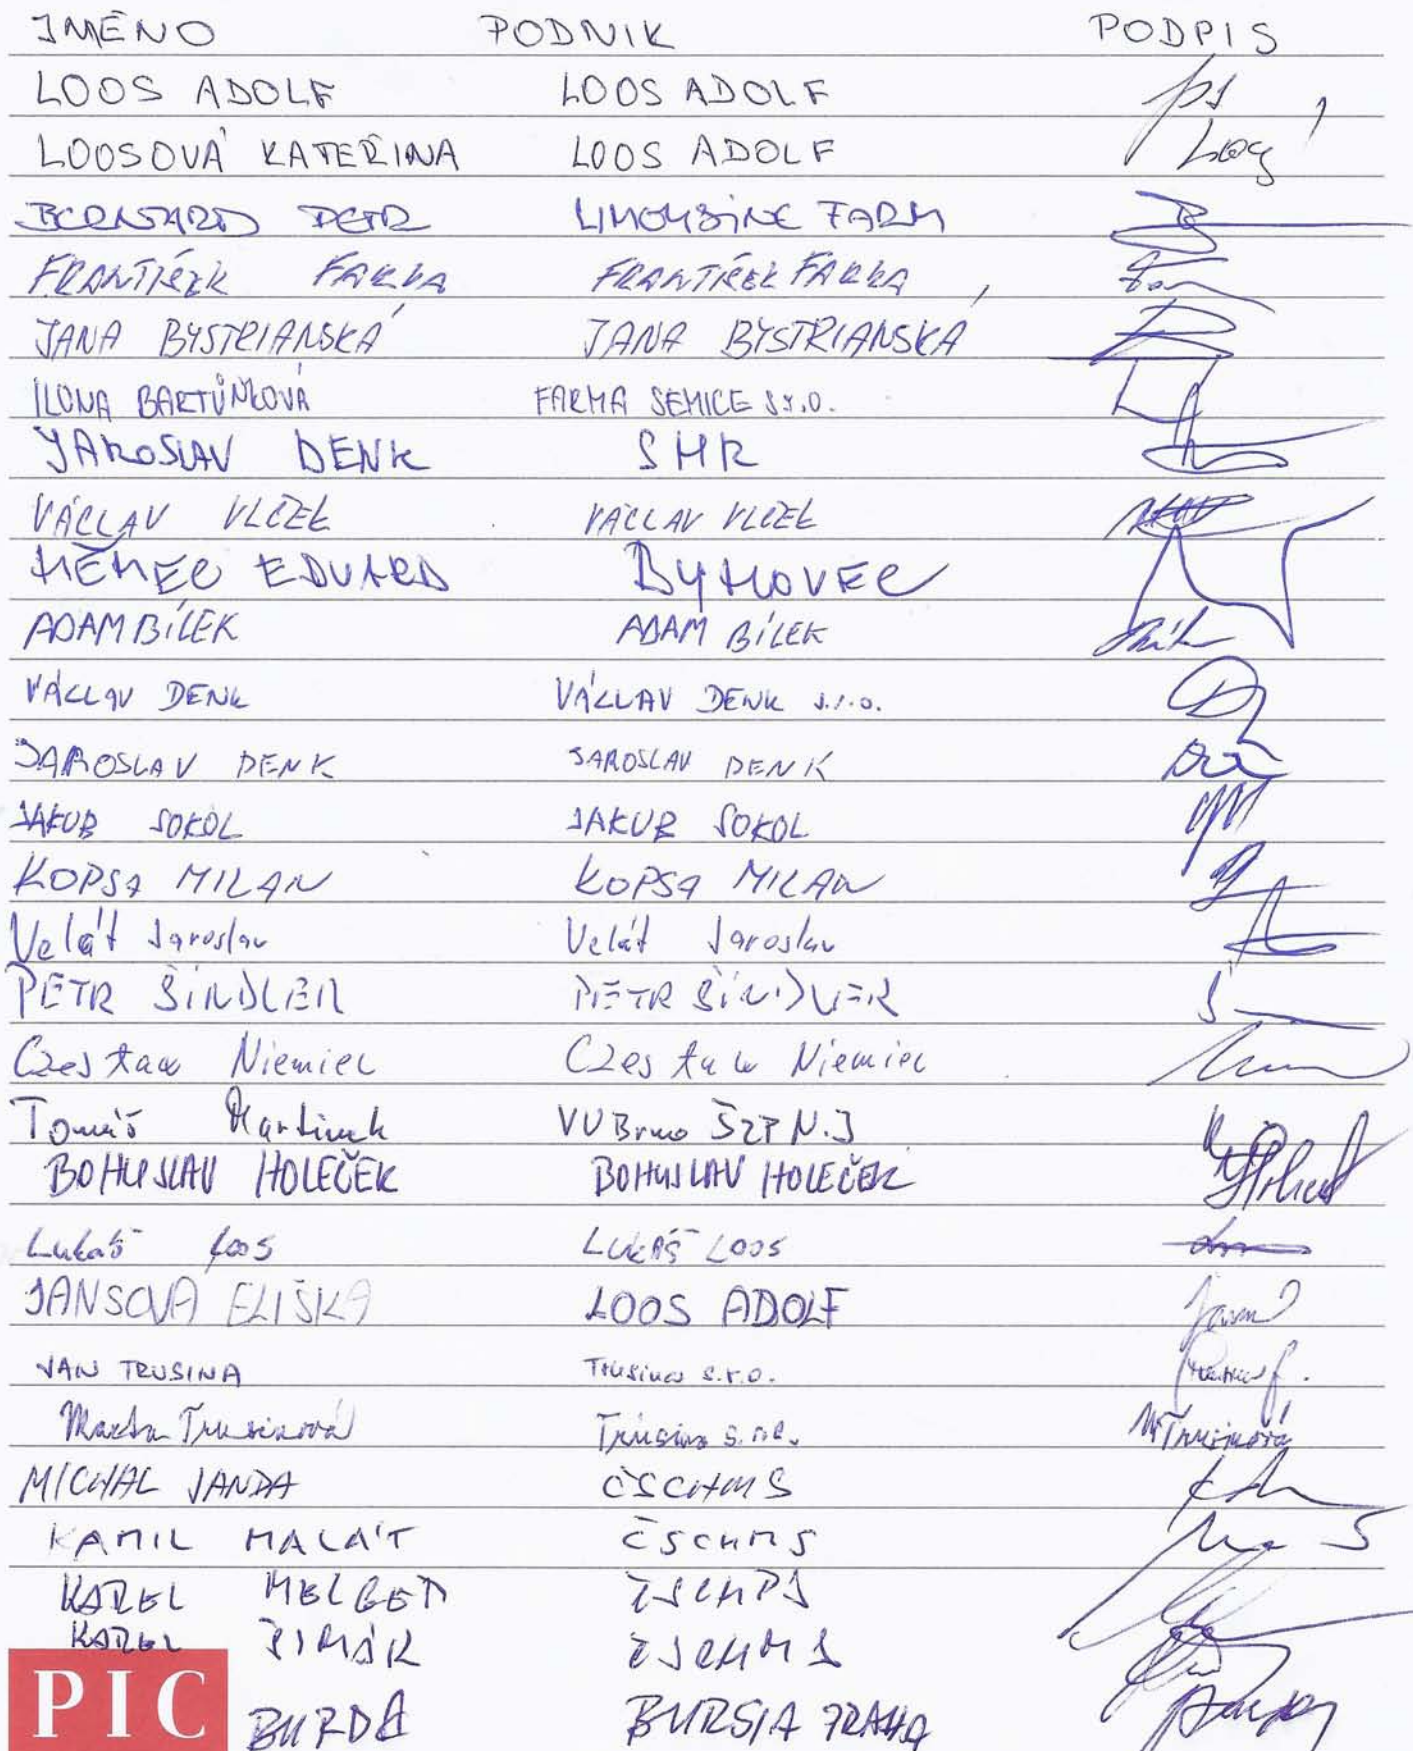 JMÉNO PODNIK PODPIS
LOOS ADOLF LOOS ADOLF
LOOSOVÁ KATEŘINA LOOS ADOLF
BERNARD PETR LIMOUSINE FARM
FRANTIŠEK FARKA FRANTIŠEK FARKA
JANA BYSTRIANSKÁ JANA BYSTRIANSKÁ
ILONA BARTŮŇKOVÁ FARMA SEMICE S.r.O.
JAROSLAV DENK SHR
VÁCLAV VLČEK VÁCLAV VLČEK
NĚMEC EDUARD BYHOVEC
ADAM BÍLEK ADAM BÍLEK
VÁCLAV DENK VÁCLAV DENK s.r.o.
JAROSLAV DENK JAROSLAV DENK
JAKUB SOKOL JAKUB SOKOL
KOPSA MILAN KOPSA MILAN
Velát Jaroslav Velát Jaroslav
PETR ŠINDLER PETR ŠINDLER
Czesław Niemiec Czesław Niemiec
Tomáš Martinek VU Brno ŠZP N.J
BOHUSLAV HOLEČEK BOHUSLAV HOLEČEK
Lukáš Loos LUKÁŠ LOOS
JANSOVÁ ELIŠKA LOOS ADOLF
JAN TRUSINA Trusina s.r.o.
Marta Trusinová Trusina s.r.o. MTrusinová
MICHAL JANDA ČSCHMS
KAMIL MALÁT ČSCHMS
KAREL MELGER ČSCHMS
KAREL ŠIMÁK ČSCHMS
PIC BURDA BURSIA PRAHA